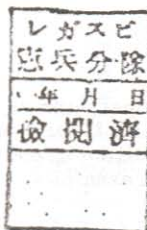 レガスピ
憲兵分隊
年 月 日
検閲済